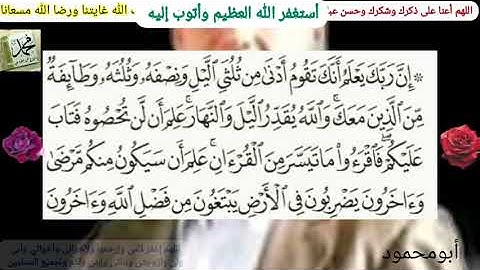 اللهم أعنا على ذكرك وشكرك وحسن
أستغفر الله العظيم وأتوب إليه
الله غايتنا ورضا الله مسعانا
محمد
۞ إِنَّ رَبَّكَ يَعْلَمُ أَنَّكَ تَقُومُ أَدْنَىٰ مِن ثُلُثَيِ ٱلَّيْلِ وَنِصْفَهُۥ وَثُلُثَهُۥ وَطَآئِفَةٌ
مِّنَ ٱلَّذِينَ مَعَكَ ۚ وَٱللَّهُ يُقَدِّرُ ٱلَّيْلَ وَٱلنَّهَارَ ۚ عَلِمَ أَن لَّن تُحْصُوهُ فَتَابَ
عَلَيْكُمْ ۖ فَٱقْرَءُوا۟ مَا تَيَسَّرَ مِنَ ٱلْقُرْءَانِ ۚ عَلِمَ أَن سَيَكُونُ مِنكُم مَّرْضَىٰ
وَءَاخَرُونَ يَضْرِبُونَ فِى ٱلْأَرْضِ يَبْتَغُونَ مِن فَضْلِ ٱللَّهِ ۙ وَءَاخَرُونَ
أبومحمود